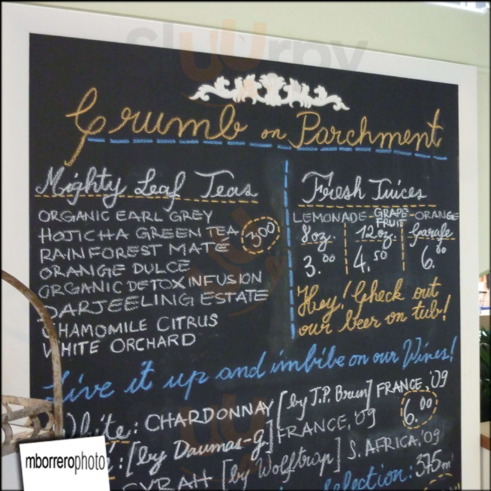 Crumb on Parchment
Mighty Leaf Teas
ORGANIC EARL GREY
HOJICHA GREEN TEA
RAINFOREST MATE
ORANGE DULCE
ORGANIC DETOX INFUSION
DARJEELING ESTATE
CHAMOMILE CITRUS
WHITE ORCHARD
3.00
Fresh Juices
LEMONADE-GRAPEFRUIT-ORANGE
8oz. 12oz. Carafe
3.00 4.50 6.00
Hey! Check out
our beer on tub!
Live it up and imbibe on our Wines!
CHARDONNAY [by J.P. Brun] FRANCE,'09
: [by Daumas-G.] FRANCE,'09
6.00
SYRAH [by Wolftrap] S. AFRICA,'09
Selection: 375ml
mborrerophoto